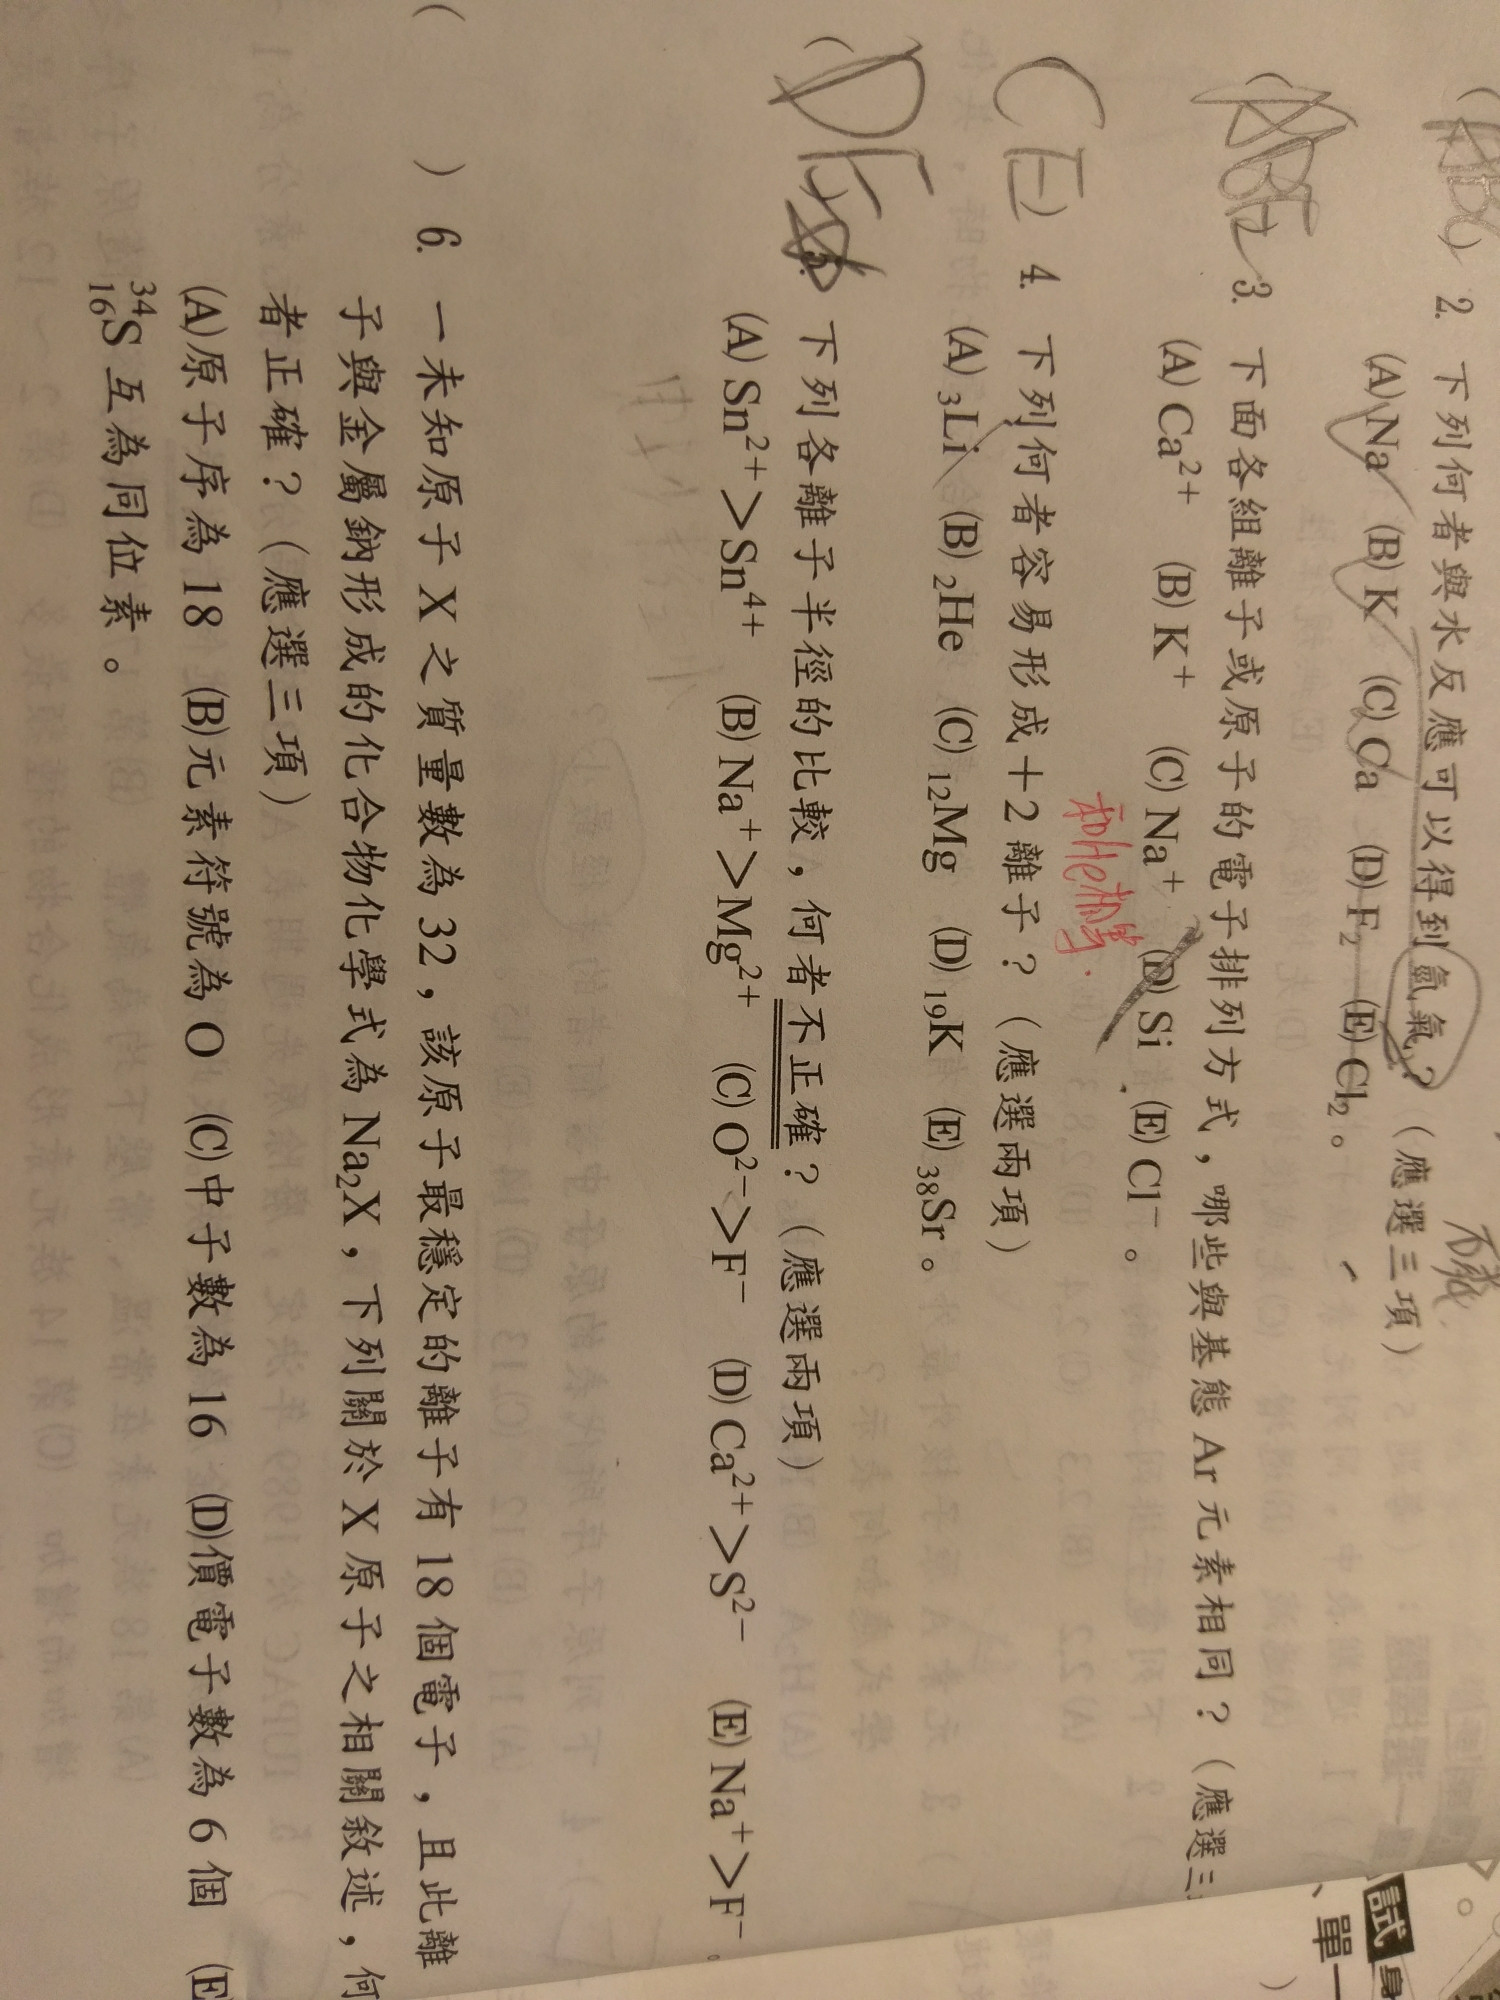 不
(ABC) 2. 下列何者與水反應可以得到氫氣?(應選三項)
(A) Na (B) K (C) Ca (D) F₂ (E) Cl₂。
(ABE) 3. 下面各組離子或原子的電子排列方式,哪些與基態 Ar 元素相同?(應選三
(A) Ca²⁺ (B) K⁺ (C) Na⁺ (D) Si (E) Cl⁻。
和He相等.
(CE) 4. 下列何者容易形成+2離子?(應選兩項)
(A) ₃Li (B) ₂He (C) ₁₂Mg (D) ₁₉K (E) ₃₈Sr。
(DE) 5. 下列各離子半徑的比較,何者不正確?(應選兩項)
(A) Sn²⁺>Sn⁴⁺ (B) Na⁺>Mg²⁺ (C) O²⁻>F⁻ (D) Ca²⁺>S²⁻ (E) Na⁺>F⁻。
( ) 6. 一未知原子 X 之質量數為 32,該原子最穩定的離子有 18 個電子,且此離
子與金屬鈉形成的化合物化學式為 Na₂X,下列關於 X 原子之相關敘述,何
者正確?(應選三項)
(A)原子序為 18 (B)元素符號為 O (C)中子數為 16 (D)價電子數為 6 個 (E
³⁴₁₆S 互為同位素。
試
單一